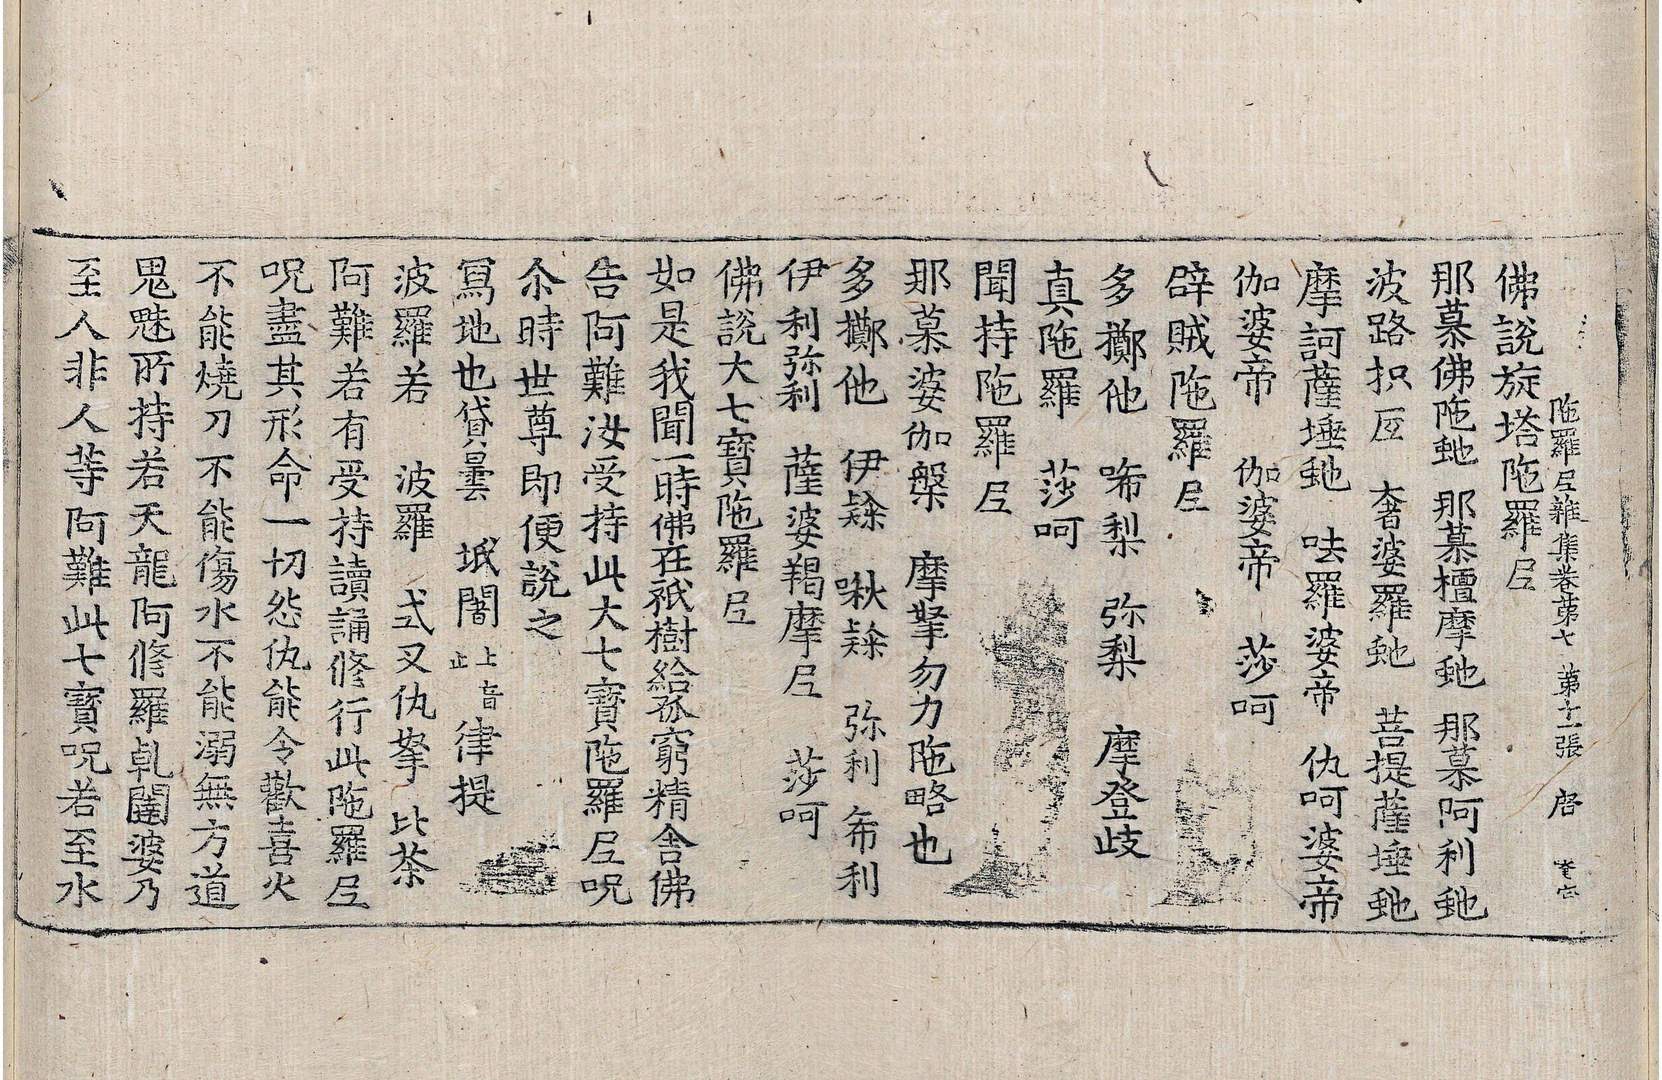 陁羅𡰱雜集卷第七 第十一張 啓
佛說旋塔陁羅𡰱
那慕佛陁虵 那慕檀摩虵 那慕阿利虵
波路抧𡰱 奢婆羅虵 菩提薩埵虵
摩訶薩埵虵 呿羅婆帝 仇呵婆帝
伽婆帝 伽婆帝 莎呵
辟賊陁羅𡰱
多擲他 唏梨 弥梨 摩登歧
真陁羅 莎呵
聞持陁羅𡰱
那慕婆伽槃 摩拏勿力陁略也
多擲他 伊𨽻 啾𨽻 弥利 希利
伊利弥利 薩婆羯摩𡰱 莎呵
佛說大七寶陁羅𡰱
如是我聞一時佛在祇樹給孤窮精舍佛
告阿難汝受持此大七寶陁羅𡰱呪
尒時世尊即便說之
寫地也貸曇 坻闍 上音 止 律提
波羅若 波羅 式叉仇拏 比荼
阿難若有受持讀誦修行此陁羅𡰱
呪盡其形命一切怨仇能令歡喜火
不能燒刀不能傷水不能溺無方道
鬼魅所持若天龍阿修羅乹闥婆乃
至人非人等阿難此七寶呪若至水